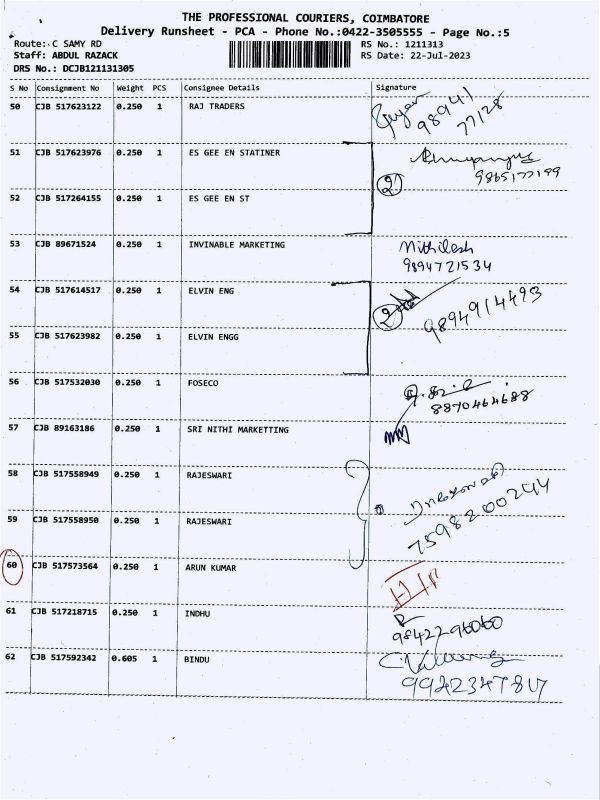 THE PROFESSIONAL COURIERS, COIMBATORE
Delivery Runsheet - PCA - Phone No.:0422-3505555 - Page No.:5
Route: C SAMY RD RS No.: 1211313
Staff: ABDUL RAZACK RS Date: 22-Jul-2023
DRS No.: DCJB121131305
S No Consignment No Weight PCS Consignee Details Signature
50 CJB 517623122 0.250 1 RAJ TRADERS
98941
77128
51 CJB 517623976 0.250 1 ES GEE EN STATINER
9865177199
2
52 CJB 517264155 0.250 1 ES GEE EN ST
53 CJB 89671524 0.250 1 INVINABLE MARKETING Nithilesh
9894721534
54 CJB 517614517 0.250 1 ELVIN ENG
2 9894914493
55 CJB 517623982 0.250 1 ELVIN ENGG
56 CJB 517532030 0.250 1 FOSECO
8870464688
57 CJB 89163186 0.250 1 SRI NITHI MARKETTING
58 CJB 517558949 0.250 1 RAJESWARI
59 CJB 517558950 0.250 1 RAJESWARI
7598200244
60 CJB 517573564 0.250 1 ARUN KUMAR
61 CJB 517218715 0.250 1 INDHU
9842296060
62 CJB 517592342 0.605 1 BINDU